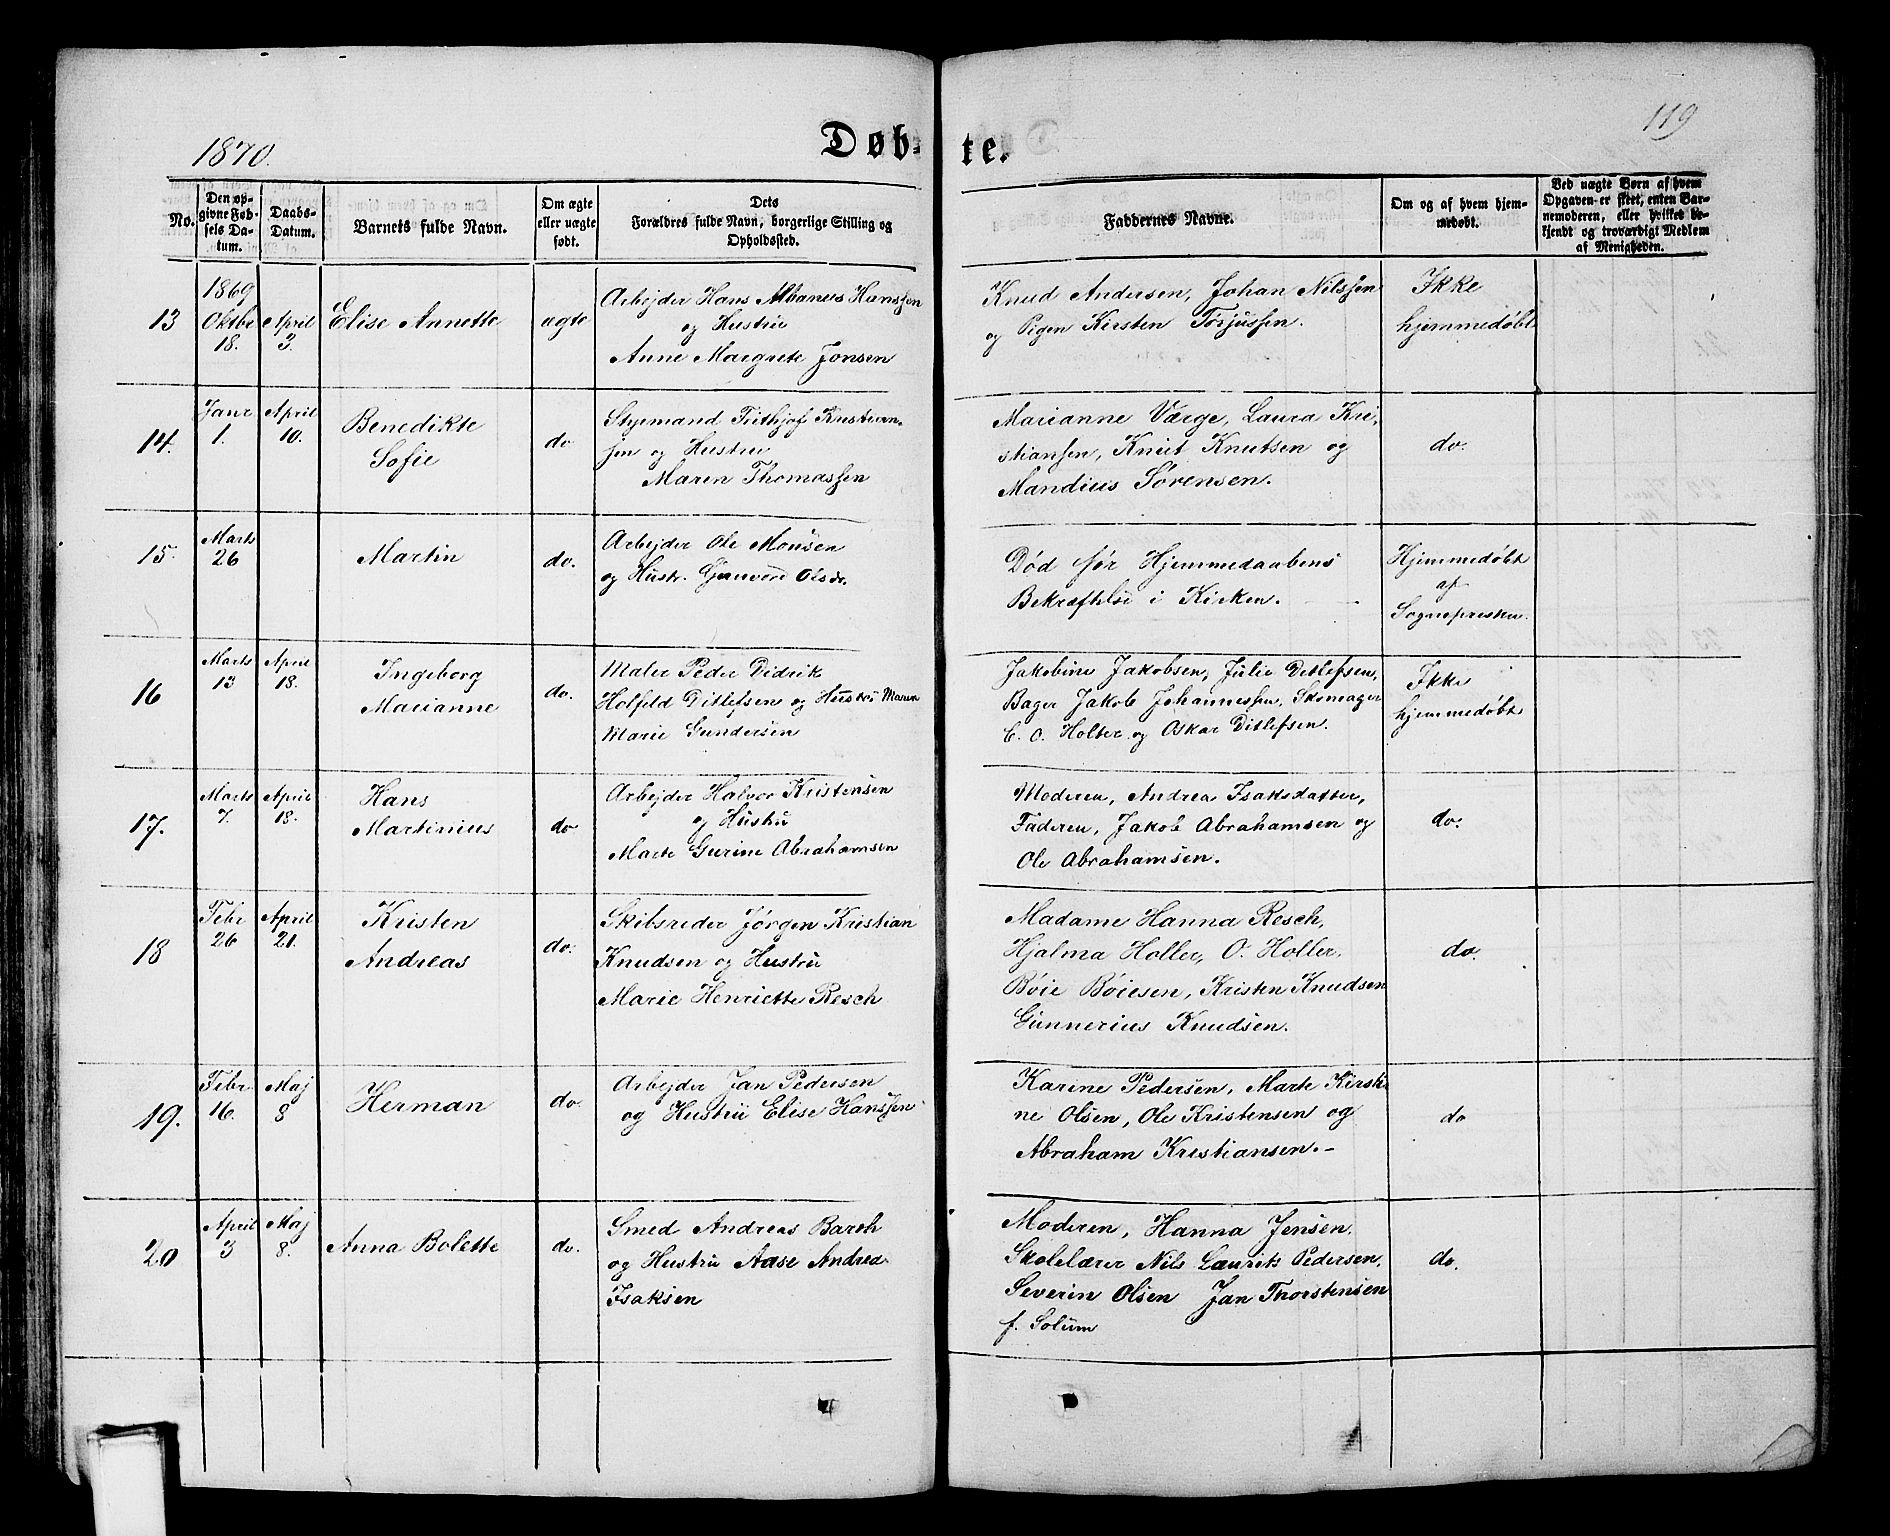 1870.
Døb-te.
119
No.
Den op-
givne Føb-
sels Da-
tum.
Daabs-
Datum.
Barnets fulde Navn.
Om ægte
eller uægte
født.
Dets
Forældres fulde Navn, borgerlige Stilling og
Opholdssted.
Faddernes Navne.
Om og af hvem hjem-
medøbt.
Ved uægte Børn af hvem
Opgaven er skeet, enten Bar-
nemoderen, eller hvilket be-
kjendt og troværdigt Medlem
af Menigheden.
13
1869
Oktbr
18.
April
3.
Elise Annette
ægte
Arbejder Hans Albanus Hanssen
og Hustru
Anne Margrete Jonsen
Knud Andersen, Johan Nilssen
og Pigen Kirsten Torjussen.
Ikke
hjemmedøbt
14.
Janr
1.
April
10.
Benedikte
Sofie
do
Styrmand Frithjof Kristian-
sen og Hustru
Maren Thomassen
Marianne Værge, Laura Kri-
stiansen, Knut Knutsen og
Mandius Sørensen.
do.
15.
Marts
26
Martin
do.
Arbejder Ole Monsen
og Hustr. Gunvord Olsdr.
Død før Hjemmedaabens
Bekræftelse i Kirken.
Hjemmedøbt
af
Sognepresten.
16
Marts
13
April
18.
Ingeborg
Marianne
do.
Maler Peder Didrik
Holfeld Ditlefsen og Hustru Maren
Marie Gundersen
Jakobine Jakobsen, Julie Ditlefsen,
Bager Jakob Johannessen, Skomager
C. O. Holter og Oskar Ditlefsen.
Ikke
hjemmedøbt
17.
Marts
7.
April
18.
Hans
Martinius
do
Arbejder Halvor Kristensen
og Hustru
Marte Gurine Abrahamsen
Moderen, Andrea Isaksdatter,
Faderen, Jakob Abrahamsen og
Ole Abrahamsen.
do.
18
Febr
26
April
21.
Kristen
Andreas
do.
Skibsreder Jørgen Kristian
Knudsen og Hustru
Marie Henriette Resch
Madame Hanna Resch,
Hjalma Holler, O. Holler,
Bøie Bøiesen, Kristen Knudsen
Gunnerius Knudsen.
do.
19.
Febr.
16.
Maj
8
Herman
do.
Arbejder Jan Pedersen
og Hustru Elise Hanssen
Karine Pedersen, Marte Kirsti-
ne Olsen, Ole Kristensen og
Abraham Kristiansen.-
do
20
April
3
Maj
8.
Anna Bolette
do.
Smed Andreas Barth
og Hustru Aase Andrea
Isaksen
Moderen, Hanna Jensen,
Skolelærer Nils Laurits Pedersen,
Severin Olsen Jan Thorstensen
f. Solum
do.